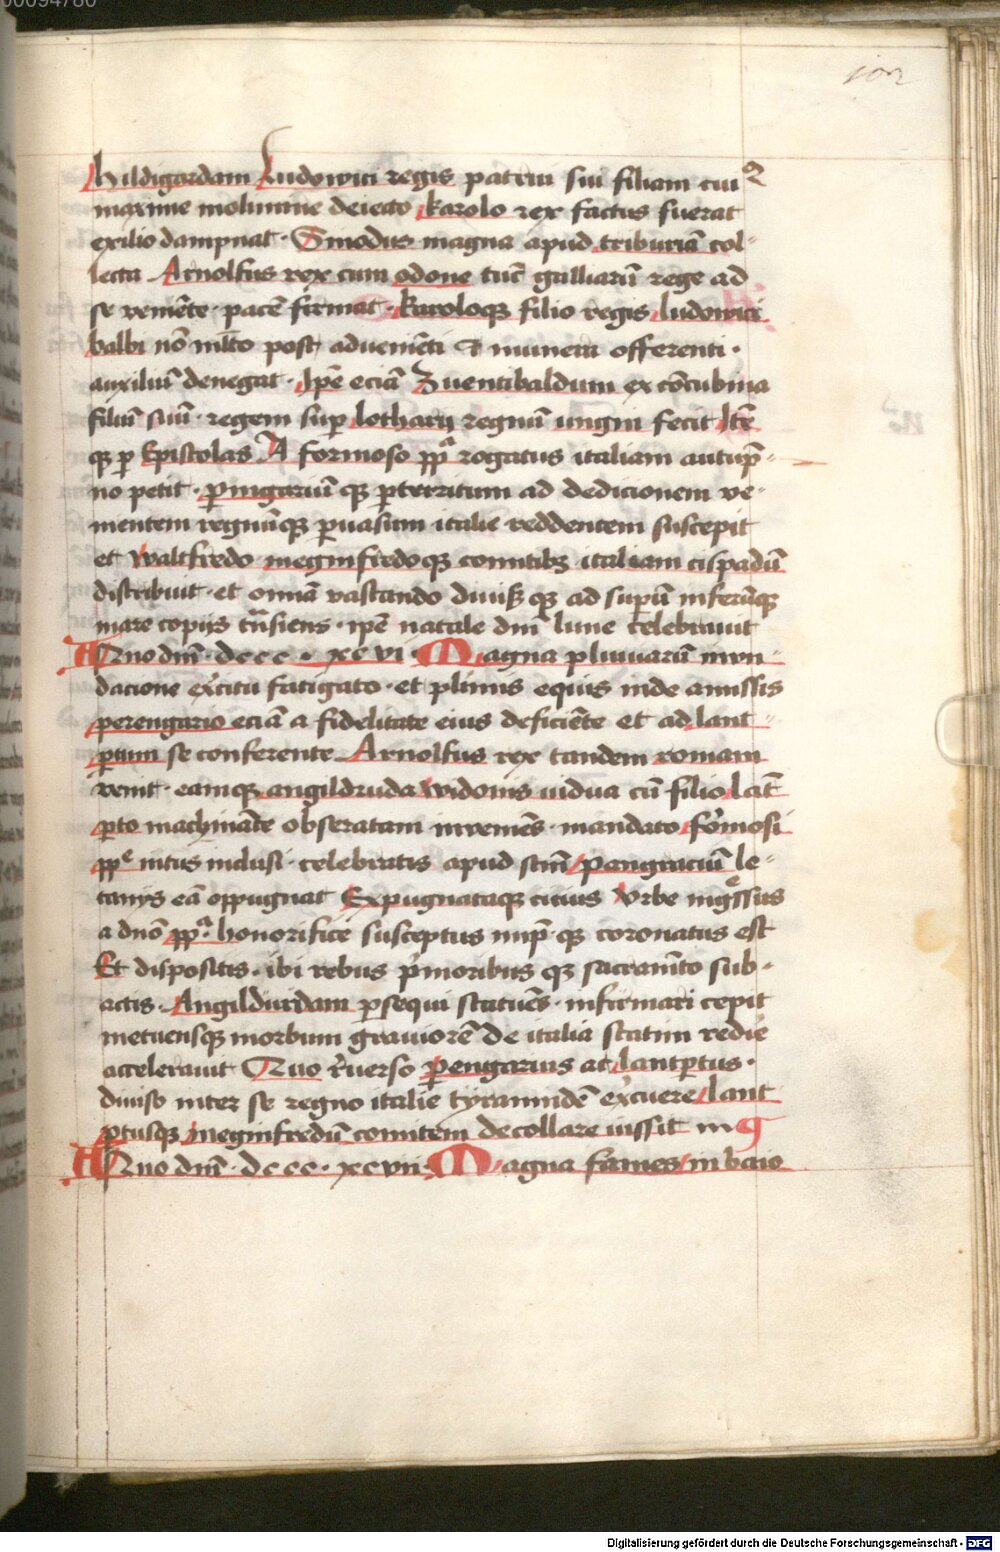 00094780
102
hildigardam ludowici regis patrui sui filiam cuiꝰ
maxime molimine deiecto karolo rex factus fuerat
exilio dampnat · Sinodus magna apud triburiā col-
lecta Arnolfus rex cum odone tūc galliarū rege ad
se veniēte · pacē firmat · karoloqꝫ filio regis ludowici
balbi nō ml̄to post advenienti et munera offerenti ·
auxiliū denegat · Ipē eciā Zuentibaldum ex cōcubina
filiū suū · regem sup̱ lotharij regnū ungui fecit Itē
qꝫ ꝑ Epistolas A formoso pp̄ rogatus italiam autup̄-
no petit · ꝑingariū qꝫ ꝑterritum ad dedicionem ve-
nientem regnūqꝫ ꝑuasum italie reddentem suscepit
et waltfredo meginfredoqꝫ comitibꝫ italiam cispadū
distribuit · et omnia vastando diuisß qꝫ ad suꝑū inferūqꝫ
mare copijs trāsiens · ipē natale dm̄ lune celebrauit
Anno dm̄ · dccc · xcvi · Magna pluuiarū inun-
dacione exꝰcitu fatigato · et plimis equis inde amissis
perengario eciā a fidelitate eius deficiēte et ad lant-
ꝑtum se conferente Arnolfus rex tandem romam
venit · eamqꝫ angildruda widonis uidua cū filio lāt
ꝑto machināte obseratam inueniēs · mandato formosi
ppe̱ intus inclusi · celebratis apud scm̄ pangraciū le-
tanijs eā oppugnat Expugnataqꝫ cicius Urbe ingressus
a dnō ppa̱ · honorifice susceptus imp̄ · qꝫ coronatus est
Et dispositis · ibi rebus pͥmoribus qꝫ sacramēto sub-
actis · Angildrudam ꝑsequi statuēs · infirmari cepit
metuensqꝫ morbum grauiorē de italia statim redire
accelerauit Quo rꝰuerso ꝑengarius ac lantꝑtus ·
diuiso inter se regno italie tyrannidē exꝰcuere lant
ꝑtusqꝫ meginfredū comitem decollare iussit in
Anno dm̄ · dccc · xcvii · Magna fames in baio
Digitalisierung gefördert durch die Deutsche Forschungsgemeinschaft - DFG